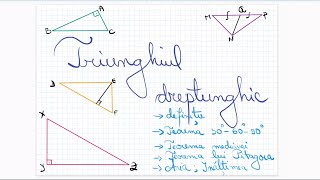 A
B
C
M
Q
P
N
Triunghiul
dreptunghic
E
F
X
Y
Z
→ definiție
→ Teorema 30°-60°-90°
→ Teorema medianei
→ Teorema lui Pitagora
→ Aria, Înălțimea